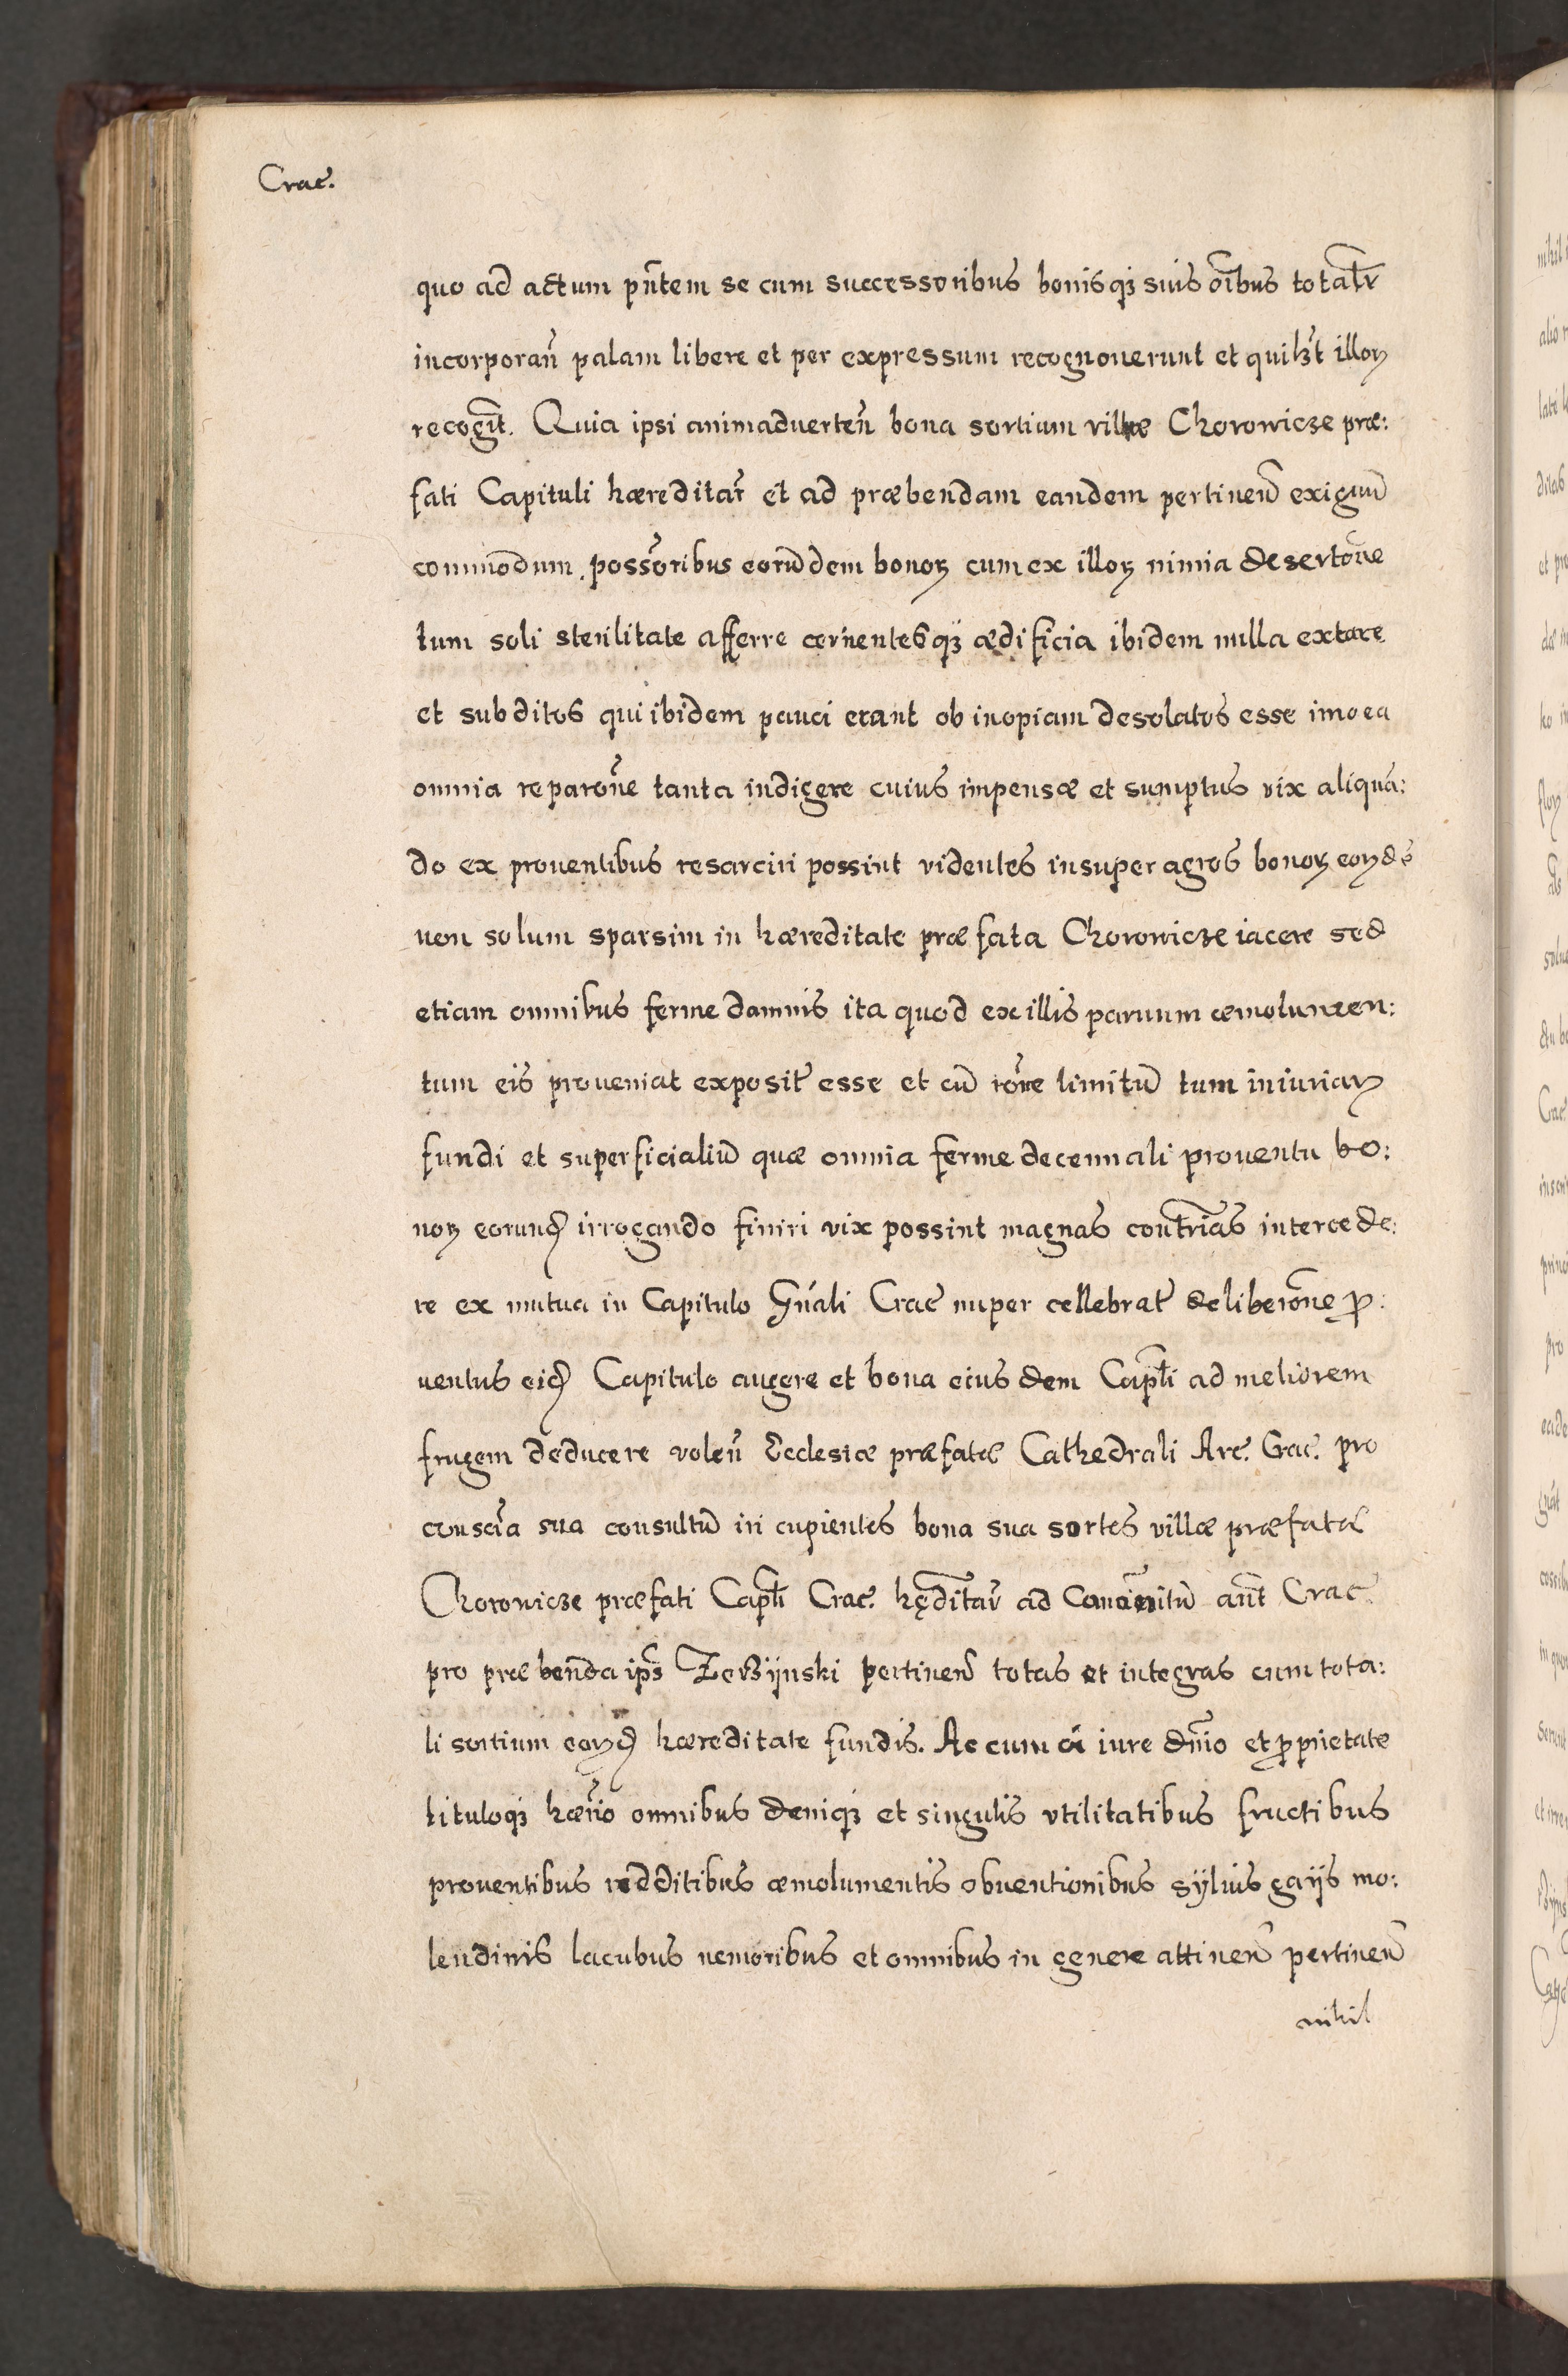 Crac̃.
quo ad actum pñtem se cum successoribus bonisqꝫ suis oĩbus totalr̃
incorporañ palam libere et per expressum recognouerunt et quilꝫt illoꝝ
recogñt. Quia ipsi animaduerteñ bona sortium villæ Chorowicze præ:
fati Capituli hæreditar̃ et ad præbendam eandem pertineñ exiguũ
commodum possoribus eorũdem bonoꝝ cum ex illoꝝ nimia desertõne
tum soli sterilitate afferre cernentesqꝫ ædificia ibidem nulla extare
et subditos qui ibidem pauci erant ob inopiam desolatos esse imo ea
omnia reparõne tanta indigere cuius impensæ et sumptus vix aliquã:
do ex prouentibus resarciri possint videntes insuper agros bonoꝝ eoꝝdẽ
non solum sparsim in hæreditate præfata Chorowicze iacere sed
etiam omnibus ferme damnis ita quod ex illis paruum æmolumen:
tum eis proueniat exposit̃ esse et cũ rõne limitũ tum iniuriaꝝ
fundi et superficialiũ quæ omnia ferme decennali prouentu bo:
noꝝ eorund̃ irrogando finiri vix possint magnas contrĩas intercede:
re ex mutua in Capitulo Gñali Crac̃ nuper cellebrat̃ deliberõne ꝓ:
uentus eid̃ Capitulo augere et bona eiusdem Capłi ad meliorem
frugem deducere voleñ Ecclesiæ præfatæ Cathedrali Arc̃. Crac̃. pro
conscĩa sua consultũ iri cupientes bona sua sortes villæ præfatæ
Chorowicze præfati Capłi Crac̃. hęditar̃ ad Canonitũ ant̃ Crac̃
pro præbenda ips̃ Zebżijnski pertineñ totas et integras cum tota:
li sortium eoꝝd̃ hæreditate fundis. Ac cum oĩ iure dñio et ꝓprietate
tituloqꝫ hær̃io omnibus deniqꝫ et singulis vtilitatibus fructibus
prouentibus redditibus æmolumentis obuentionibus sÿluis gaijs mo:
lendinis lacubus nemoribus et omnibus in genere attineñ pertineñ
nihil